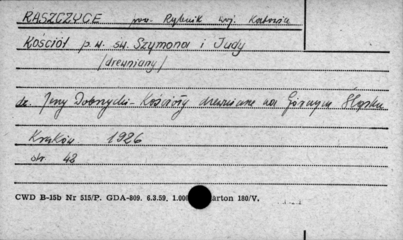 RASZCZYCE pow. Rybnik woj. Katowice
Kościół p.w. św. Szymona i Judy
/drewniany/
Jerzy Dobrzycki - Kościoły drewniane na Górnym Śląsku
Kraków 1926
str. 48
CWD B-15b Nr 515/P. GDA-809. 6.3.59. 1.000 arton 180/V.